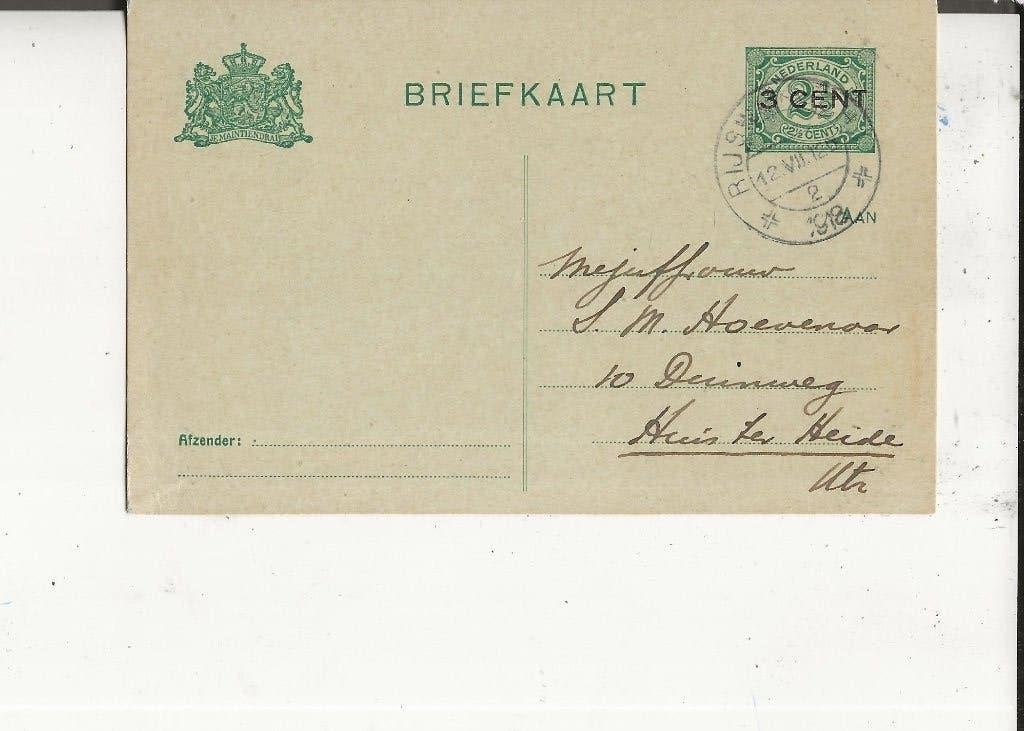 JE MAINTIENDRAI
BRIEFKAART
NEDERLAND
3 CENT
2½ CENT
RIJSW
12.VII.12
2
1918
AAN
Mejuffrouw
S. M. Hoevenaar
10 Duinweg
Huis ter Heide
Utr
Afzender: